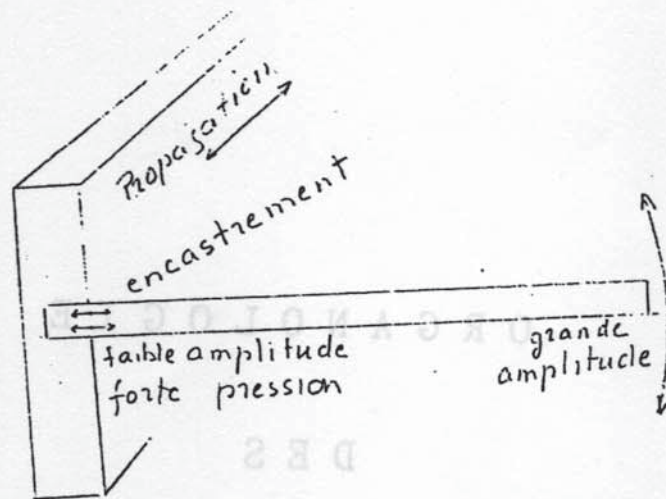 Propagation
encastrement
faible amplitude
forte pression
grande
amplitude
ORGANOLOGIE
DES